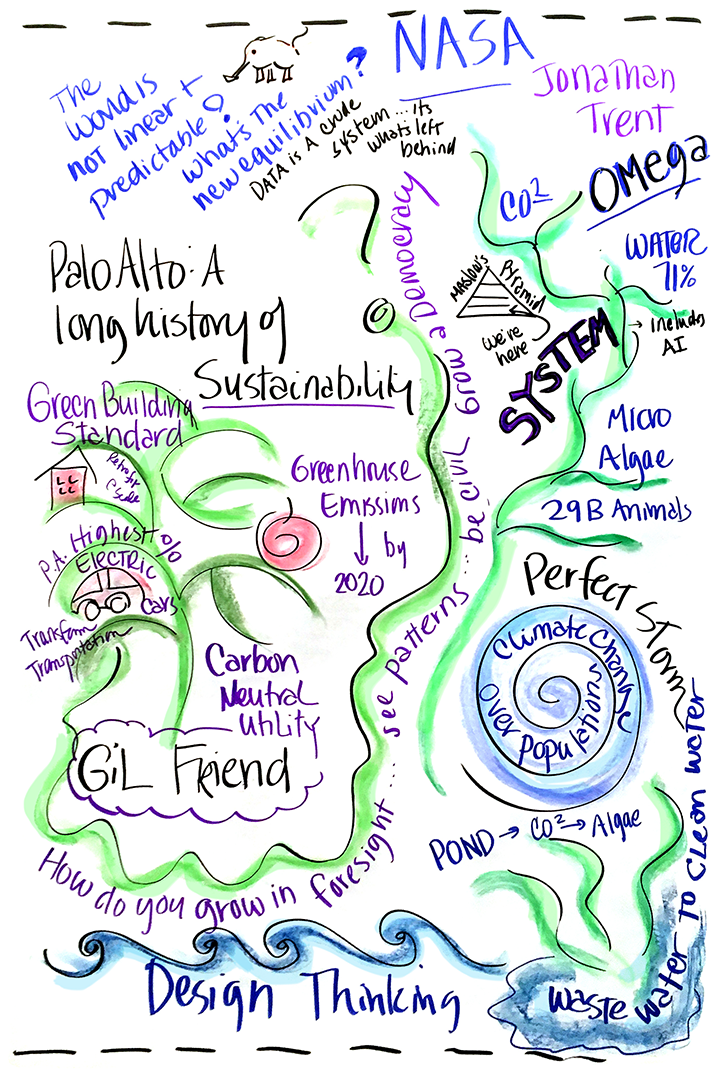 The
World is
not linear +
predictable
what's the
new equilibrium?
DATA is A crude
system ... its
whats left
behind
NASA
Jonathan
Trent
OMEGA
SYSTEM
CO²
WATER
71%
→ includes
AI
Maslow's
Pyramid
we're
here
Micro
Algae
29B Animals
Palo Alto: A
long history of
Sustainability
Green Building
Standard
P.A. Highest %
ELECTRIC
cars
Transform
Transportation
Greenhouse
Emissims
by
2020
Carbon
Neutral
Utility
Gil Friend
How do you grow in foresight ... see patterns ... be civil grow a Democracy
Perfect Storm
Climate Change
over populations
POND → CO² → Algae
Waste water TO Clean water
Design Thinking